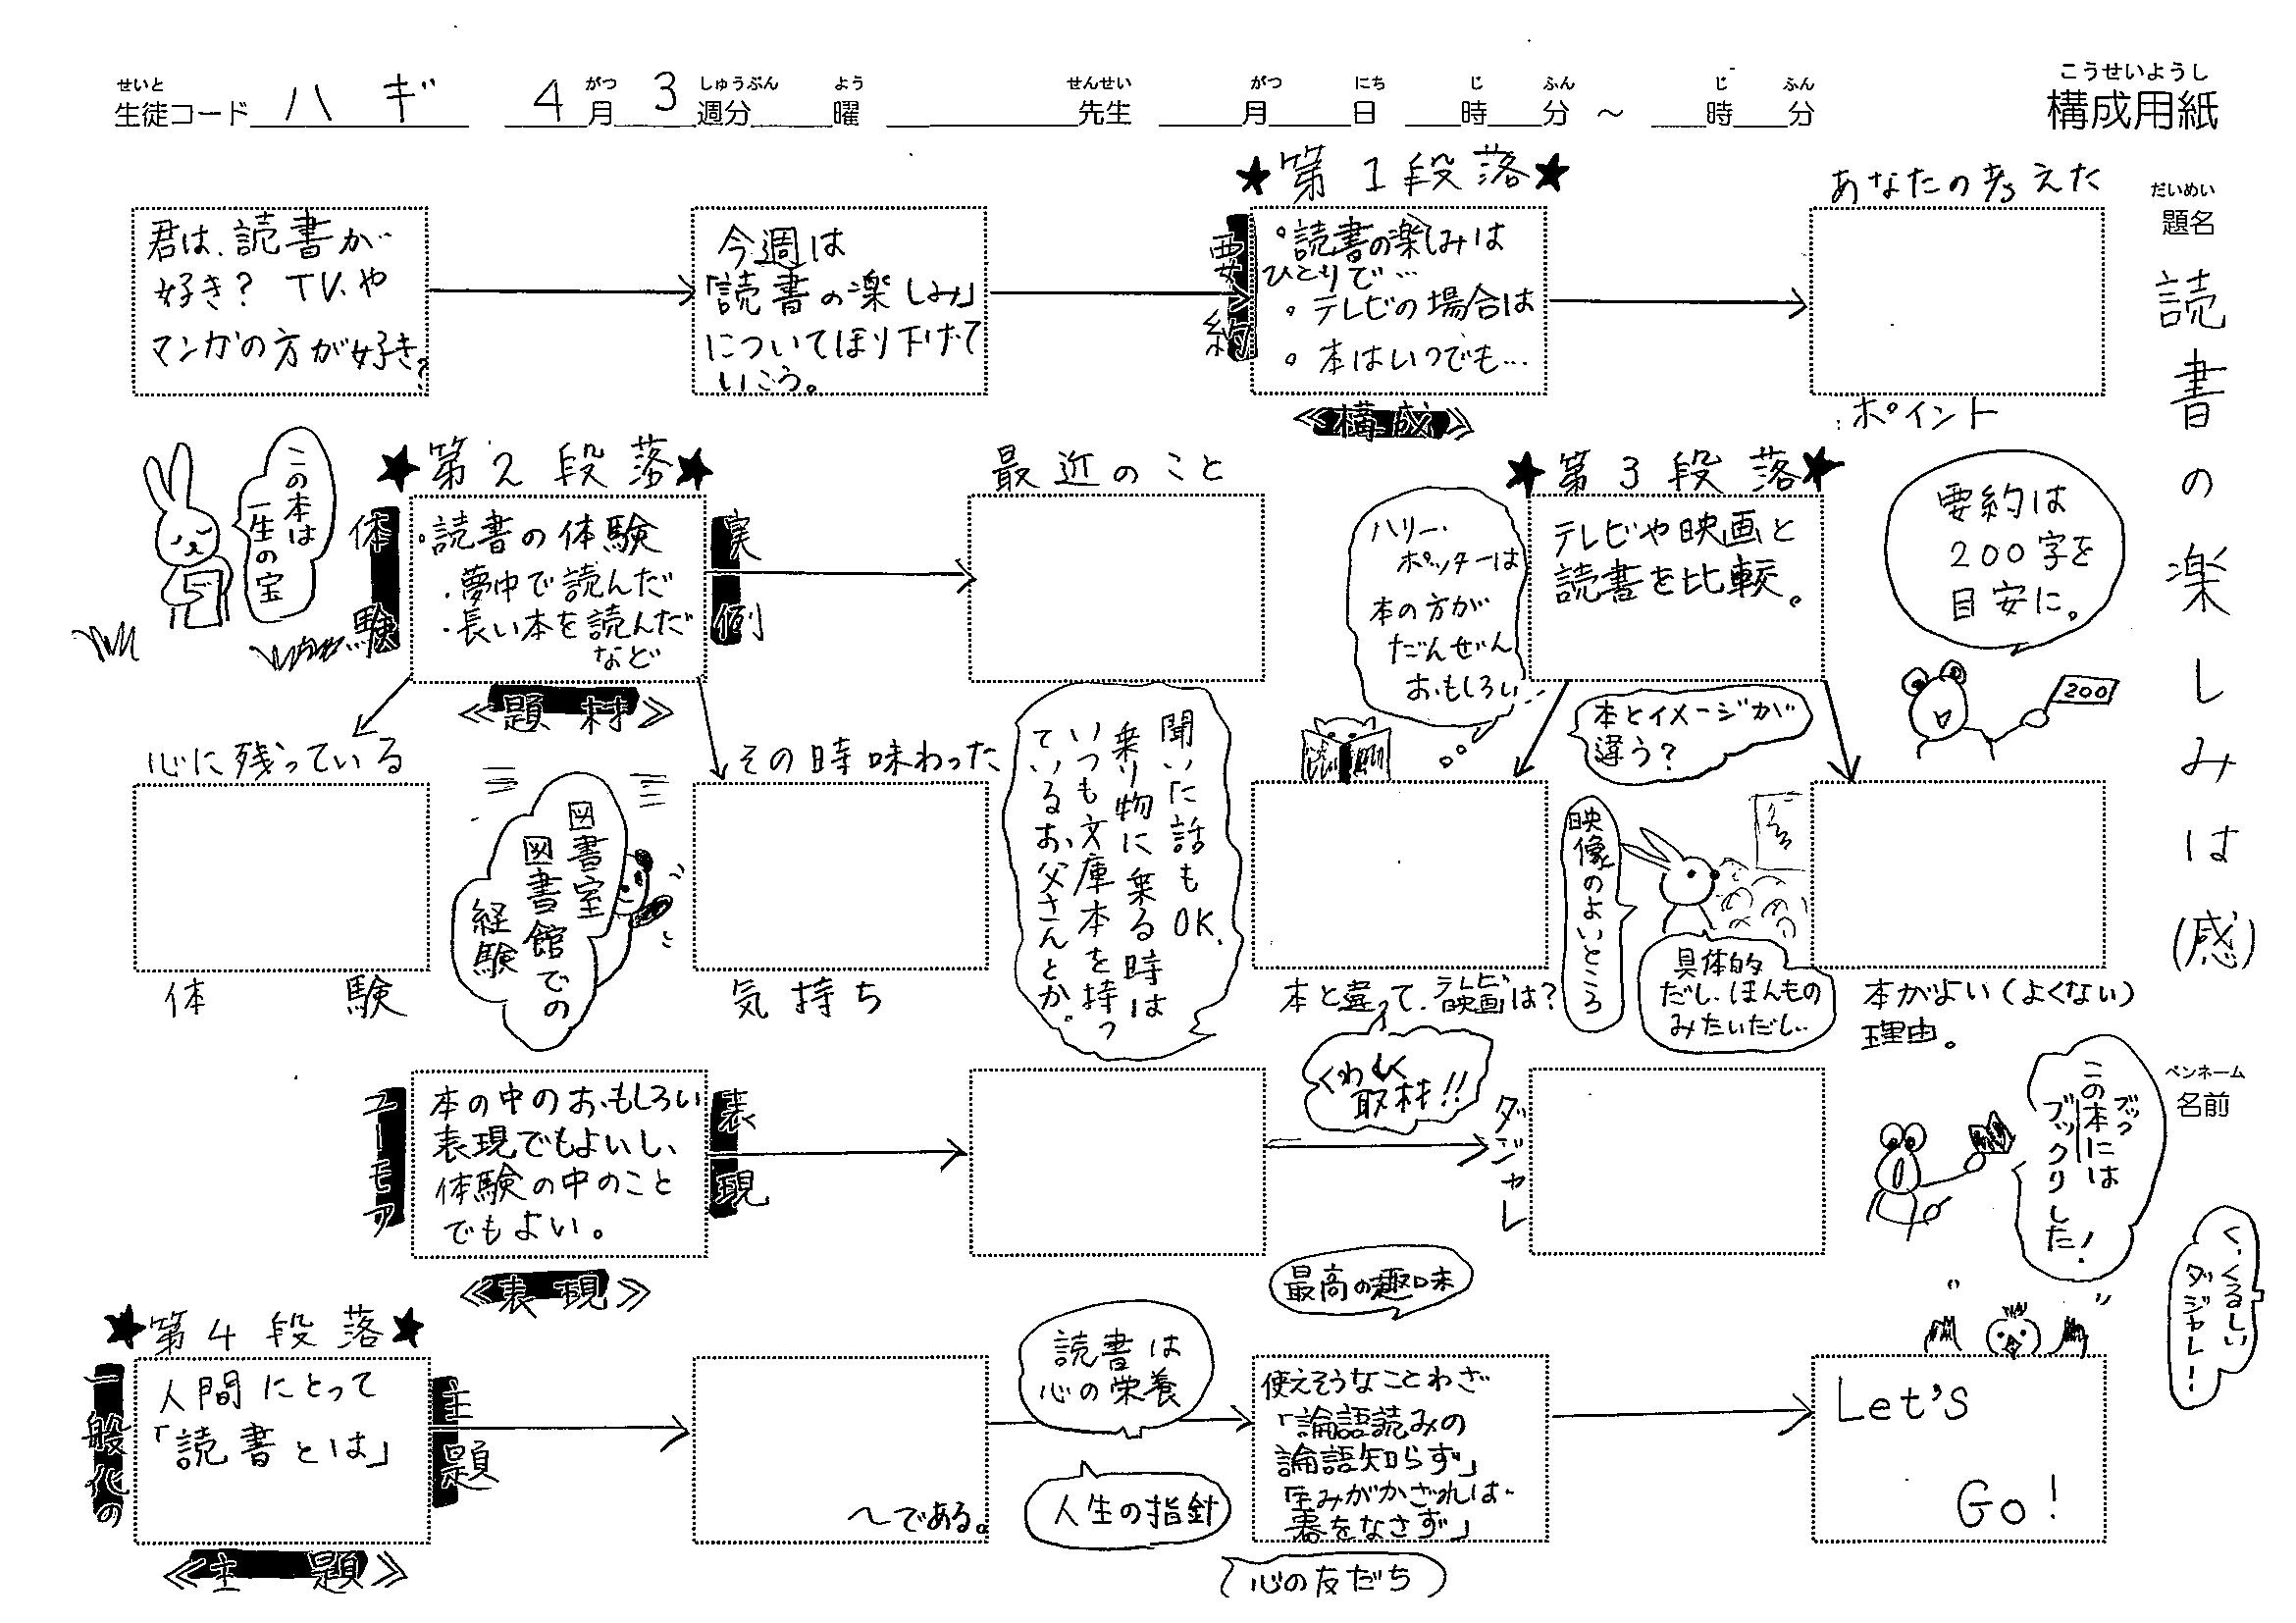 せいと がつ しゅうぶん よう せんせい がつ にち じ ふん じ ふん
生徒コード ハギ 4月 3週分 曜 先生 月 日 時 分 ～ 時 分
こうせいようし
構成用紙
だいめい
題名
読書の楽しみは(感)
ペンネーム
名前
君は、読書が
好き? TV、や
マンガの方が好き?
今週は
「読書の楽しみ」
についてほり下げて
いこう。
★第1段落★
要約
・読書の楽しみは
ひとりで…
・テレビの場合は
・本はいつでも…
≪構成≫
あなたの考えた
ポイント
この本は
一生の宝
★第2段落★
体験
・読書の体験
・夢中で読んだ
・長い本を読んだ
など
実例
≪題材≫
最近のこと
ハリー・
ポッターは
本の方が
だんぜん
おもしろい…
★第3段落★
テレビや映画と
読書を比較。
要約は
200字を
目安に。
200
心に残っている
体験
図書室
図書館での
経験
その時味わった
気持ち
聞いた話もOK、
乗り物に乗る時は
いつも文庫本を持っ
ているお父さんとか。
本とイメージが
違う?
本と違って、テレビ映画は?
映像のよいところ
具体的
だし、ほんもの
みたいだし…
本がよい(よくない)
理由。
ユーモア
本の中のおもしろい
表現でもよいし、
体験の中のこと
でもよい。
表現
≪表現≫
くわしく
取材!!
ダジャレ
ブック
この本には
ブックリした!
く、くるしい
ダジャレ!
★第4段落★
一般化の
人間にとって
「読書とは」
主題
≪主題≫
～である。
読書は
心の栄養
最高の趣味
人生の指針
心の友だち
使えそうなことわざ
「論語読みの
論語知らず」
をなさず」
Let's
Go!